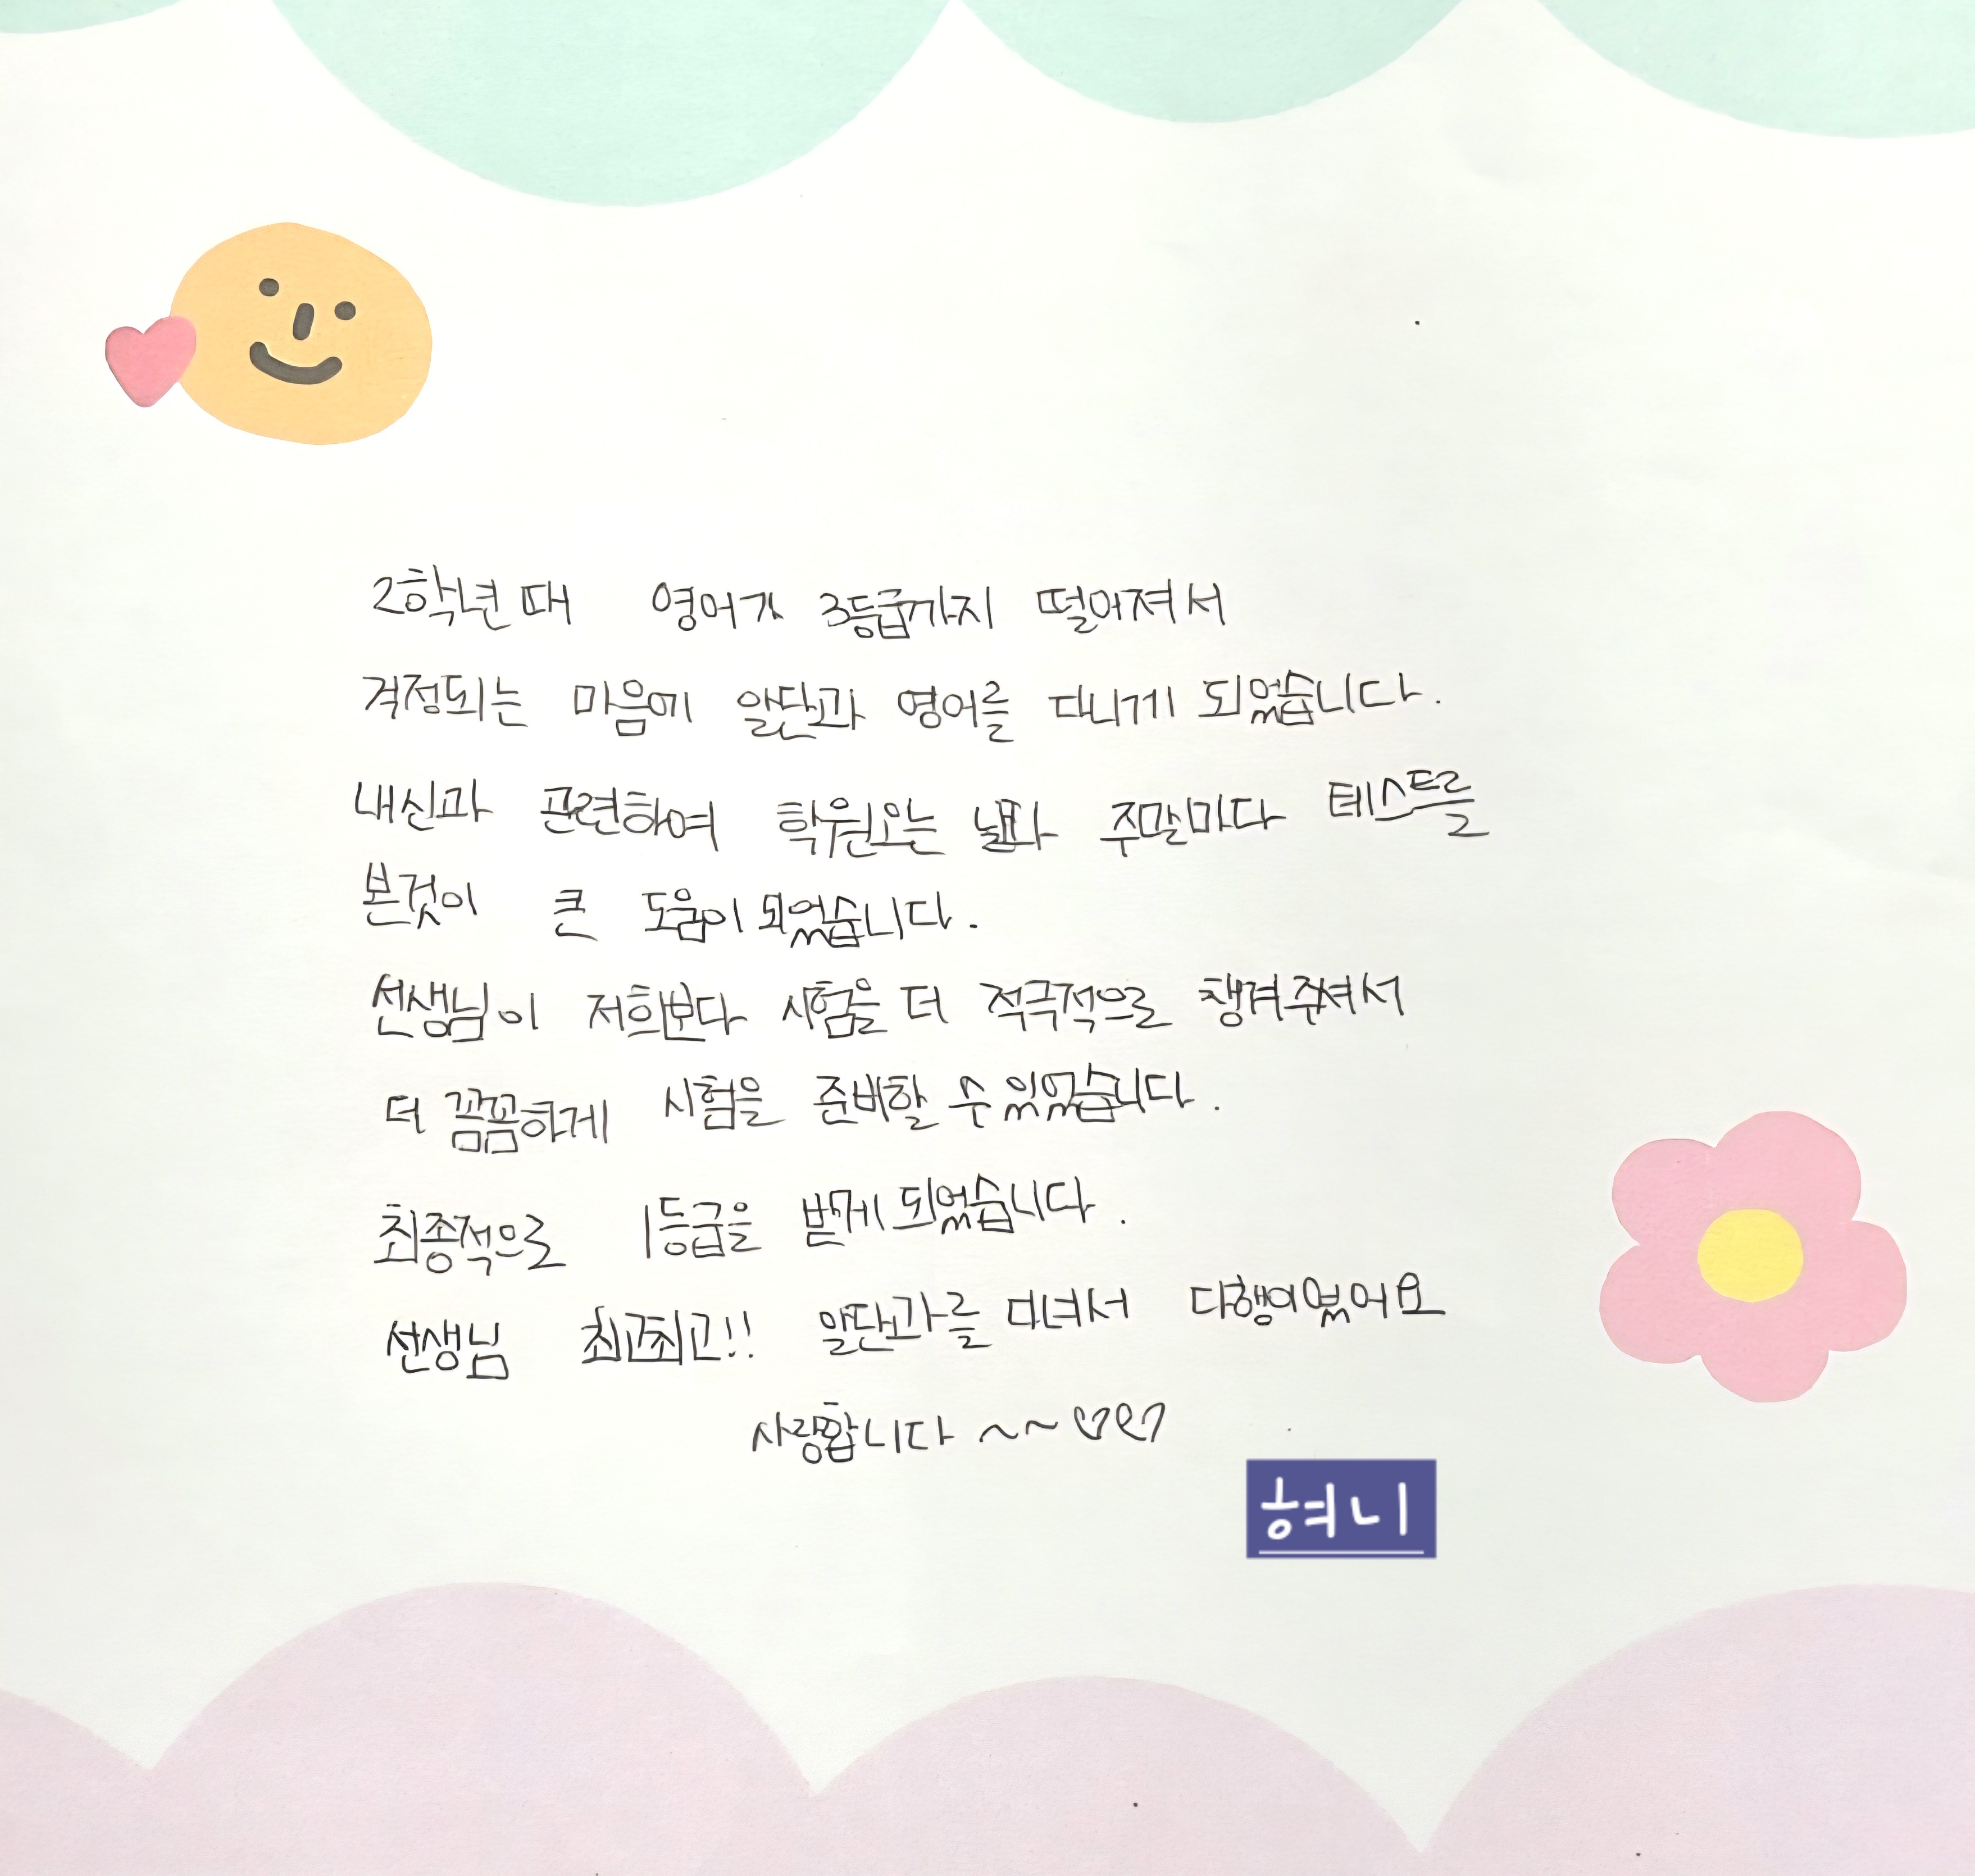 2학년때 영어가 3등급까지 떨어져서
걱정되는 마음에 알단과 영어를 다니게 되었습니다.
내신과 관련하여 학원오는 날과 주말마다 테스트를
본것이 큰 도움이 되었습니다.
선생님이 저희보다 시험을 더 적극적으로 챙겨주셔서
더 꼼꼼하게 시험을 준비할 수 있었습니다.
최종적으로 1등급을 받게 되었습니다.
선생님 최고최고!! 알단과를 다녀서 다행이였어요
사랑합니다 ~~♡♡
혀니